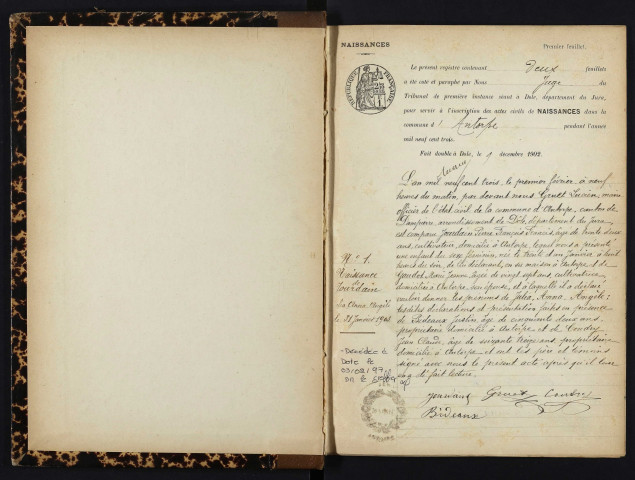 NAISSANCES
Premier feuillet.
Le présent registre contenant Deux feuillets
a été coté et paraphé par Nous Juge du
Tribunal de première Instance séant à Dole, département du Jura,
pour servir à l'inscription des actes civils de NAISSANCES dans la
commune d' Antorpe pendant l'année
mil neuf cent trois.
Fait double à Dole, le 1 décembre 1902
L'an mil neuf cent trois, le premier février à neuf
heures du matin, par devant nous Genet maire
officier de l'état civil de la commune d'Antorpe, canton de
Dampierre, arrondissement de Dole, département du Jura
est comparu Jourdain Pierre François Francis, âgé de trente
ans, cultivateur, domicilié à Antorpe, lequel nous a présenté
un enfant du sexe féminin, né le trente et un Janvier, à huit
heures du soir, de lui déclarant, en sa maison à Antorpe, et de
Marie âgée de vingt sept ans, cultivatrice
domiciliée à Antorpe, son épouse, et à laquelle il a déclaré
vouloir donner les prénoms de Julia, Anna, Angèle;
lesdites déclarations et présentation faites en présence
de Bideaux Justin, âgé de cinquante deux ans,
propriétaire domicilié à Antorpe et de
Jean Claude, âgé de soixante ans, propriétaire
domicilié à Antorpe et ont les père et témoins
signé avec nous le présent acte après qu'il leur
en a été fait lecture.
N° 1.
Naissance
Anna Angèle
le 31 Janvier 1903
Décédée à
Dole le
03/02/97
Genet
Bideaux